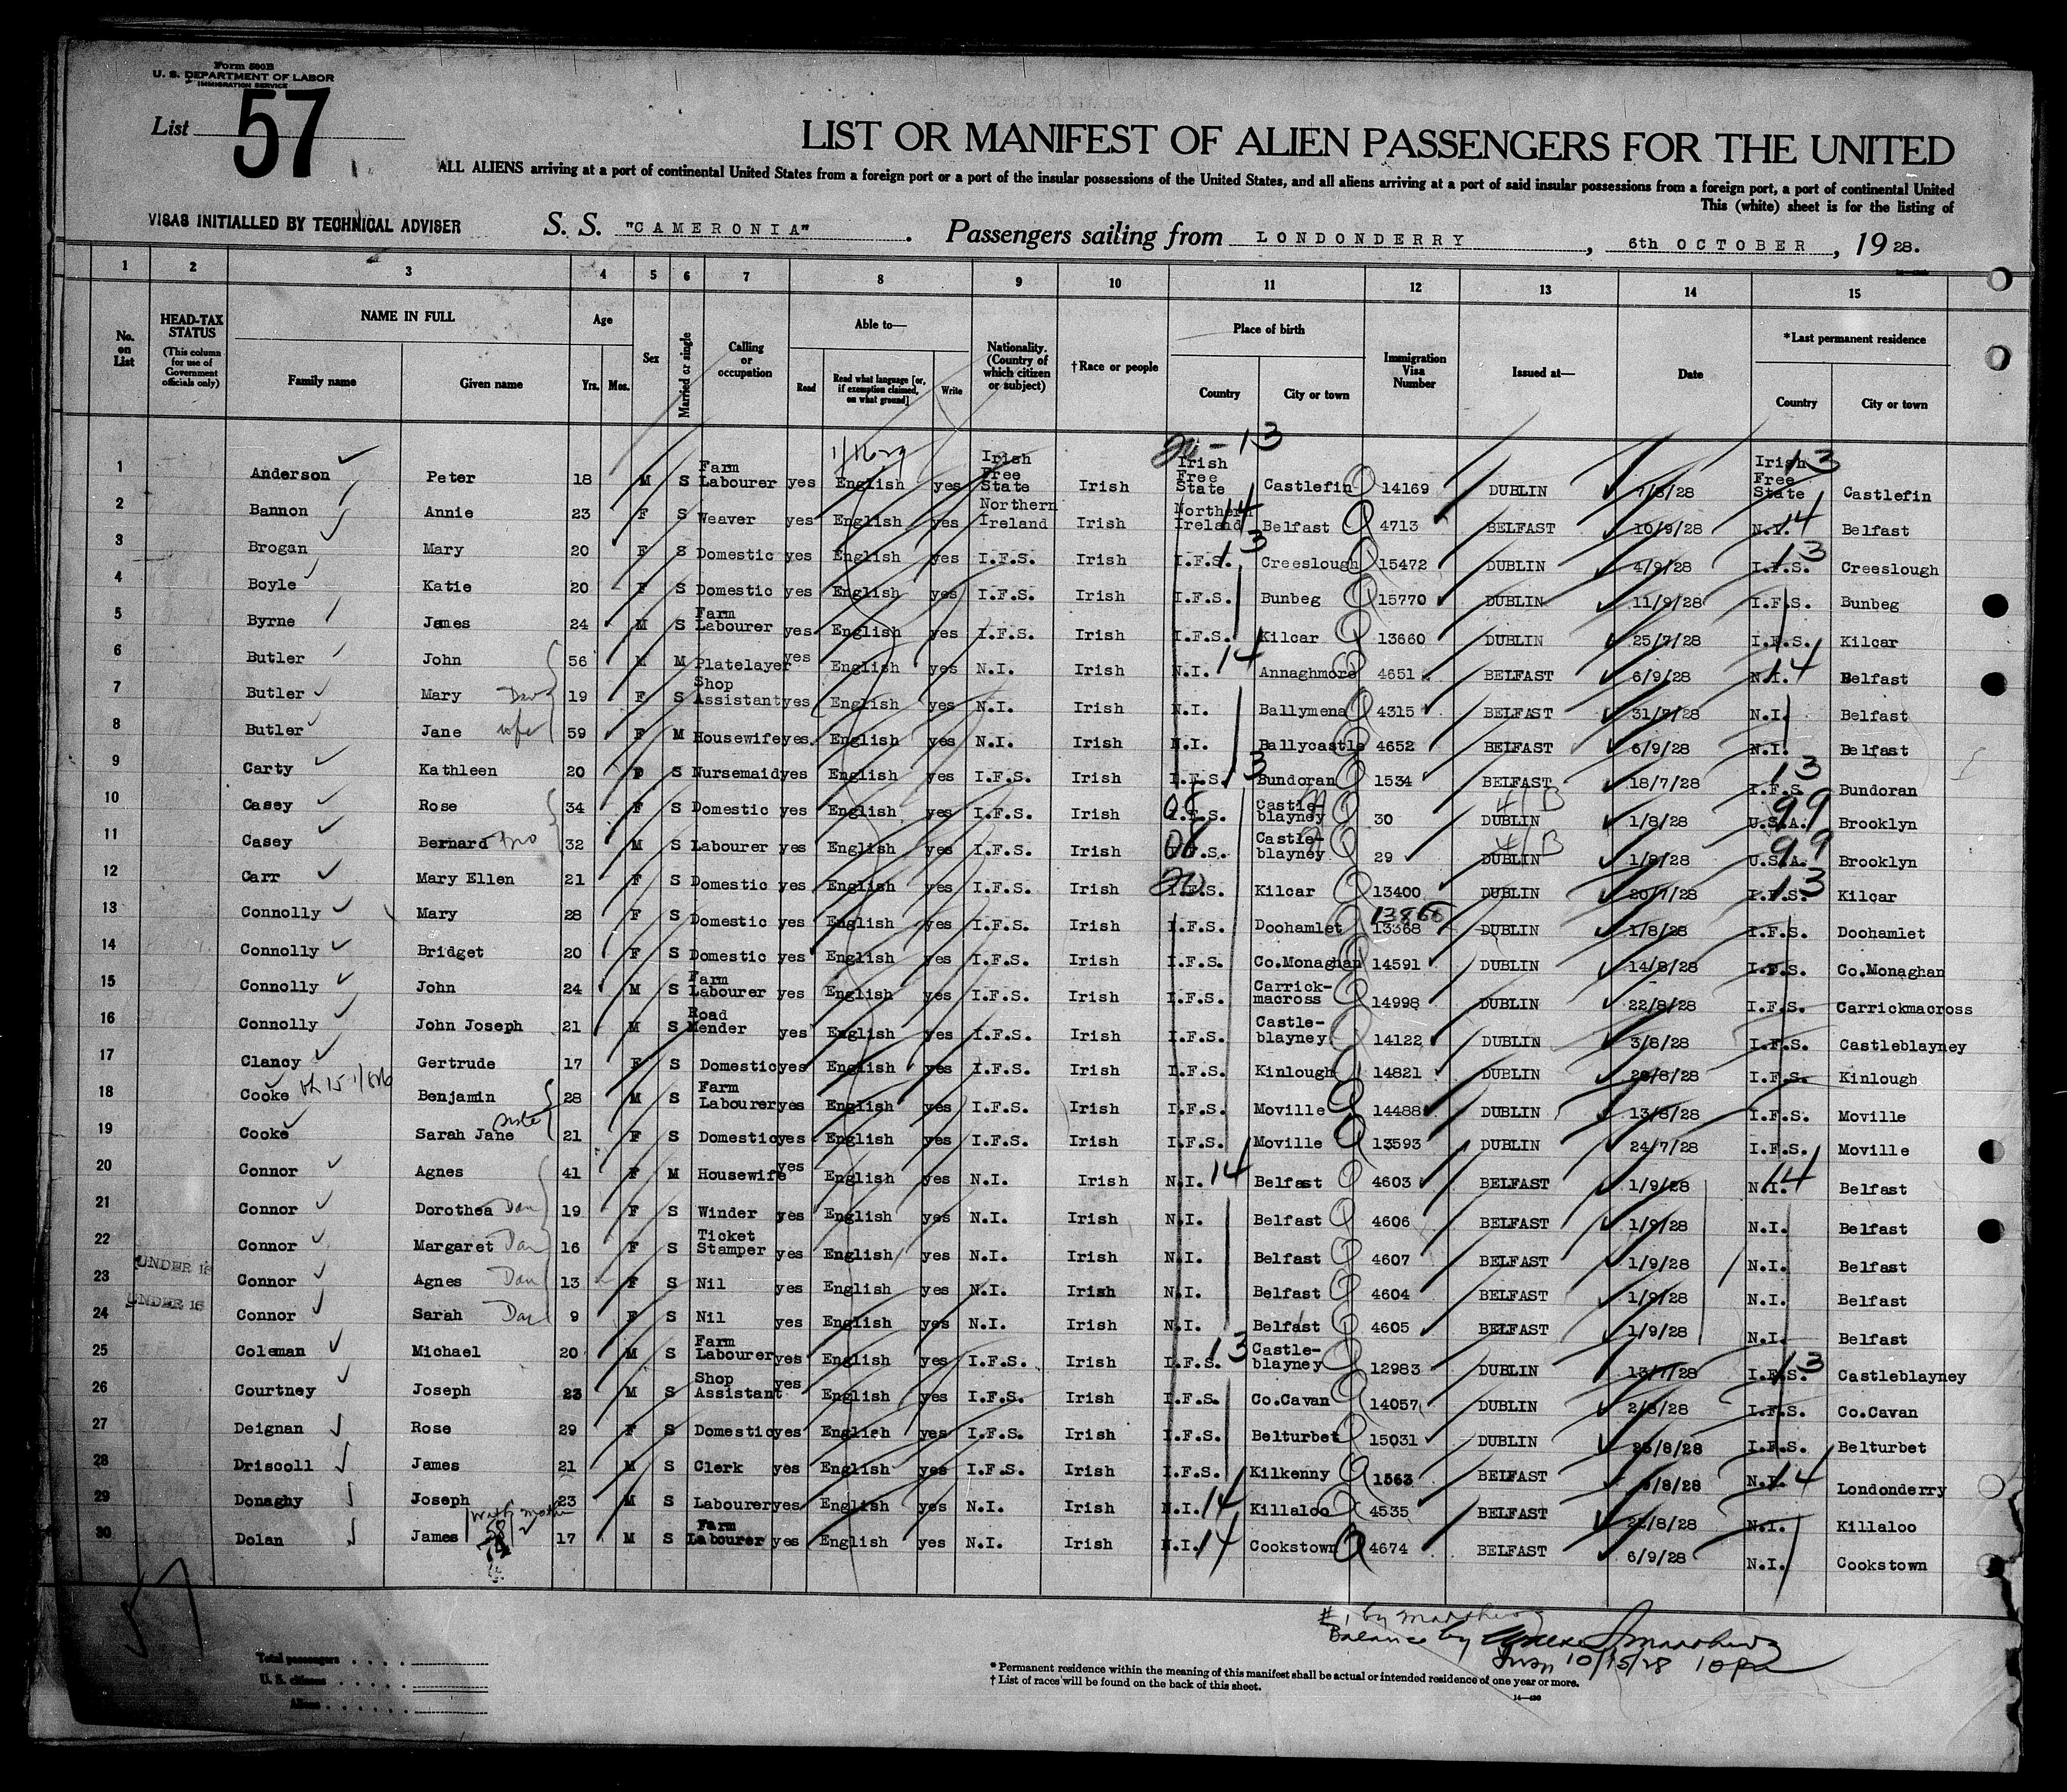 Form 500B
U. S. DEPARTMENT OF LABOR
IMMIGRATION SERVICE
List 57
LIST OR MANIFEST OF ALIEN PASSENGERS FOR THE UNITED
ALL ALIENS arriving at a port of continental United States from a foreign port or a port of the insular possessions of the United States, and all aliens arriving at a port of said insular possessions from a foreign port, a port of continental United
This (white) sheet is for the listing of
VISAS INITIALLED BY TECHNICAL ADVISER S. S. "CAMERONIA". Passengers sailing from LONDONDERRY, 6th OCTOBER, 1928.
1 2 3 4 5 6 7 8 9 10 11 12 13 14 15
No. on List
HEAD-TAX STATUS (This column for use of Government officials only)
NAME IN FULL Family name Given name
Age Yrs. Mos.
Sex
Married or single
Calling or occupation
Able to— Read Read what language [or, if exemption claimed, on what ground] Write
Nationality. (Country of which citizen or subject)
†Race or people
Place of birth Country City or town
Immigration Visa Number
Issued at—
Date
*Last permanent residence Country City or town
1 Anderson Peter 18 M S Farm Labourer yes English yes Irish Free State Irish Irish Free State Castlefin 14169 DUBLIN 7/8/28 Irish Free State Castlefin
2 Bannon Annie 23 F S Weaver yes English yes Northern Ireland Irish Northern Ireland Belfast 4713 BELFAST 10/9/28 N.I. Belfast
3 Brogan Mary 20 F S Domestic yes English yes I.F.S. Irish I.F.S. Creeslough 15472 DUBLIN 4/9/28 I.F.S. Creeslough
4 Boyle Katie 20 F S Domestic yes English yes I.F.S. Irish I.F.S. Bunbeg 15770 DUBLIN 11/9/28 I.F.S. Bunbeg
5 Byrne James 24 M S Farm Labourer yes English yes I.F.S. Irish I.F.S. Kilcar 13660 DUBLIN 25/7/28 I.F.S. Kilcar
6 Butler John 56 M M Platelayer yes English yes N.I. Irish N.I. Annaghmore 4651 BELFAST 6/9/28 N.I. Belfast
7 Butler Mary Dau 19 F S Shop Assistant yes English yes N.I. Irish N.I. Ballymena 4315 BELFAST 31/7/28 N.I. Belfast
8 Butler Jane wife 59 F M Housewife yes. English yes N.I. Irish N.I. Ballycastle 4652 BELFAST 6/9/28 N.I. Belfast
9 Carty Kathleen 20 F S Nursemaid yes English yes I.F.S. Irish I.F.S. Bundoran 1534 BELFAST 18/7/28 I.F.S. Bundoran
10 Casey Rose 34 F S Domestic yes English yes I.F.S. Irish I.F.S. Castle-blayney 30 DUBLIN 1/8/28 U.S.A. Brooklyn
11 Casey Bernard bro 32 M S Labourer yes English yes I.F.S. Irish I.F.S. Castle-blayney 29 DUBLIN 1/8/28 U.S.A. Brooklyn
12 Carr Mary Ellen 21 F S Domestic yes English yes I.F.S. Irish I.F.S. Kilcar 13400 DUBLIN 20/7/28 I.F.S. Kilcar
13 Connolly Mary 28 F S Domestic yes English yes I.F.S. Irish I.F.S. Doohamlet 13868 13368 DUBLIN 1/8/28 I.F.S. Doohamlet
14 Connolly Bridget 20 F S Domestic yes English yes I.F.S. Irish I.F.S. Co.Monaghan 14591 DUBLIN 14/8/28 I.F.S. Co.Monaghan
15 Connolly John 24 M S Farm Labourer yes English yes I.F.S. Irish I.F.S. Carrick-macross 14998 DUBLIN 22/8/28 I.F.S. Carrickmacross
16 Connolly John Joseph 21 M S Road Mender yes English yes I.F.S. Irish I.F.S. Castle-blayney 14122 DUBLIN 3/8/28 I.F.S. Castleblayney
17 Clancy Gertrude 17 F S Domestic yes English yes I.F.S. Irish I.F.S. Kinlough 14821 DUBLIN 20/8/28 I.F.S. Kinlough
18 Cooke Benjamin 28 M S Farm Labourer yes English yes I.F.S. Irish I.F.S. Moville 14488 DUBLIN 13/8/28 I.F.S. Moville
19 Cooke Sarah Jane sister 21 F S Domestic yes English yes I.F.S. Irish I.F.S. Moville 13593 DUBLIN 24/7/28 I.F.S. Moville
20 Connor Agnes 41 F M Housewife yes English yes N.I. Irish N.I. Belfast 4603 BELFAST 1/9/28 N.I. Belfast
21 Connor Dorothea Dau 19 F S Winder yes English yes N.I. Irish N.I. Belfast 4606 BELFAST 1/9/28 N.I. Belfast
22 Connor Margaret Dau 16 F S Ticket Stamper yes English yes N.I. Irish N.I. Belfast 4607 BELFAST 1/9/28 N.I. Belfast
UNDER 16
23 Connor Agnes Dau 13 F S Nil yes English yes N.I. Irish N.I. Belfast 4604 BELFAST 1/9/28 N.I. Belfast
UNDER 16
24 Connor Sarah Dau 9 F S Nil yes English yes N.I. Irish N.I. Belfast 4605 BELFAST 1/9/28 N.I. Belfast
25 Coleman Michael 20 M S Farm Labourer yes English yes I.F.S. Irish I.F.S. Castle-blayney 12983 DUBLIN 13/7/28 I.F.S. Castleblayney
26 Courtney Joseph 23 M S Shop Assistant yes English yes I.F.S. Irish I.F.S. Co.Cavan 14057 DUBLIN 2/8/28 I.F.S. Co.Cavan
27 Deignan Rose 29 F S Domestic yes English yes I.F.S. Irish I.F.S. Belturbet 15031 DUBLIN I.F.S. Belturbet
28 Driscoll James 21 M S Clerk yes English yes I.F.S. Irish I.F.S. Kilkenny 1563 BELFAST N.I. Londonderry
29 Donaghy Joseph 23 M S Labourer yes English yes N.I. Irish N.I. Killaloo 4535 BELFAST N.I. Killaloo
30 Dolan James 17 M S Farm Labourer yes English yes N.I. Irish N.I. Cookstown 4674 BELFAST 6/9/28 N.I. Cookstown
57
Total passengers
U. S. citizens
Aliens
#1 by Matthews
Balance by
10/15/28
* Permanent residence within the meaning of this manifest shall be actual or intended residence of one year or more.
† List of races will be found on the back of this sheet.